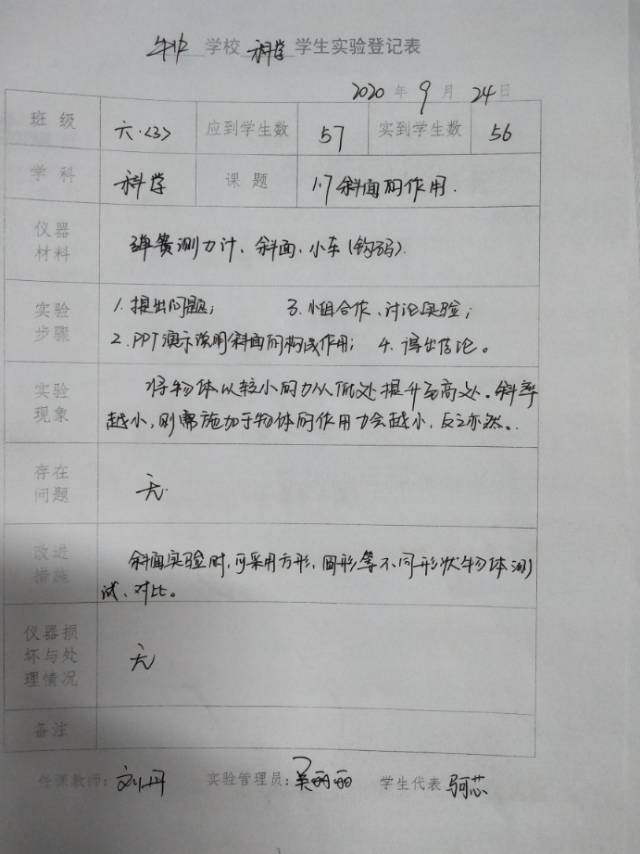 学校 科学 学生实验登记表
2020 年 9 月 24 日
班级 六.<3> 应到学生数 57 实到学生数 56
学科 科学 课题 1.7斜面的作用.
仪器材料 弹簧测力计、斜面、小车(钩码).
实验步骤 1. 提出问题; 3. 小组合作、讨论实验;
2. PPT演示说明斜面的构成作用; 4. 得出结论。
实验现象 将物体以较小的力从低处提升至高处。斜率
越小,则需施加于物体的作用力会越小,反之亦然。
存在问题 无.
改进措施 斜面实验时,可采用方形,圆形等不同形状物体测
试、对比。
仪器损坏与处理情况 无
备注
任课教师: 刘丹 实验管理员: 吴丽丽 学生代表